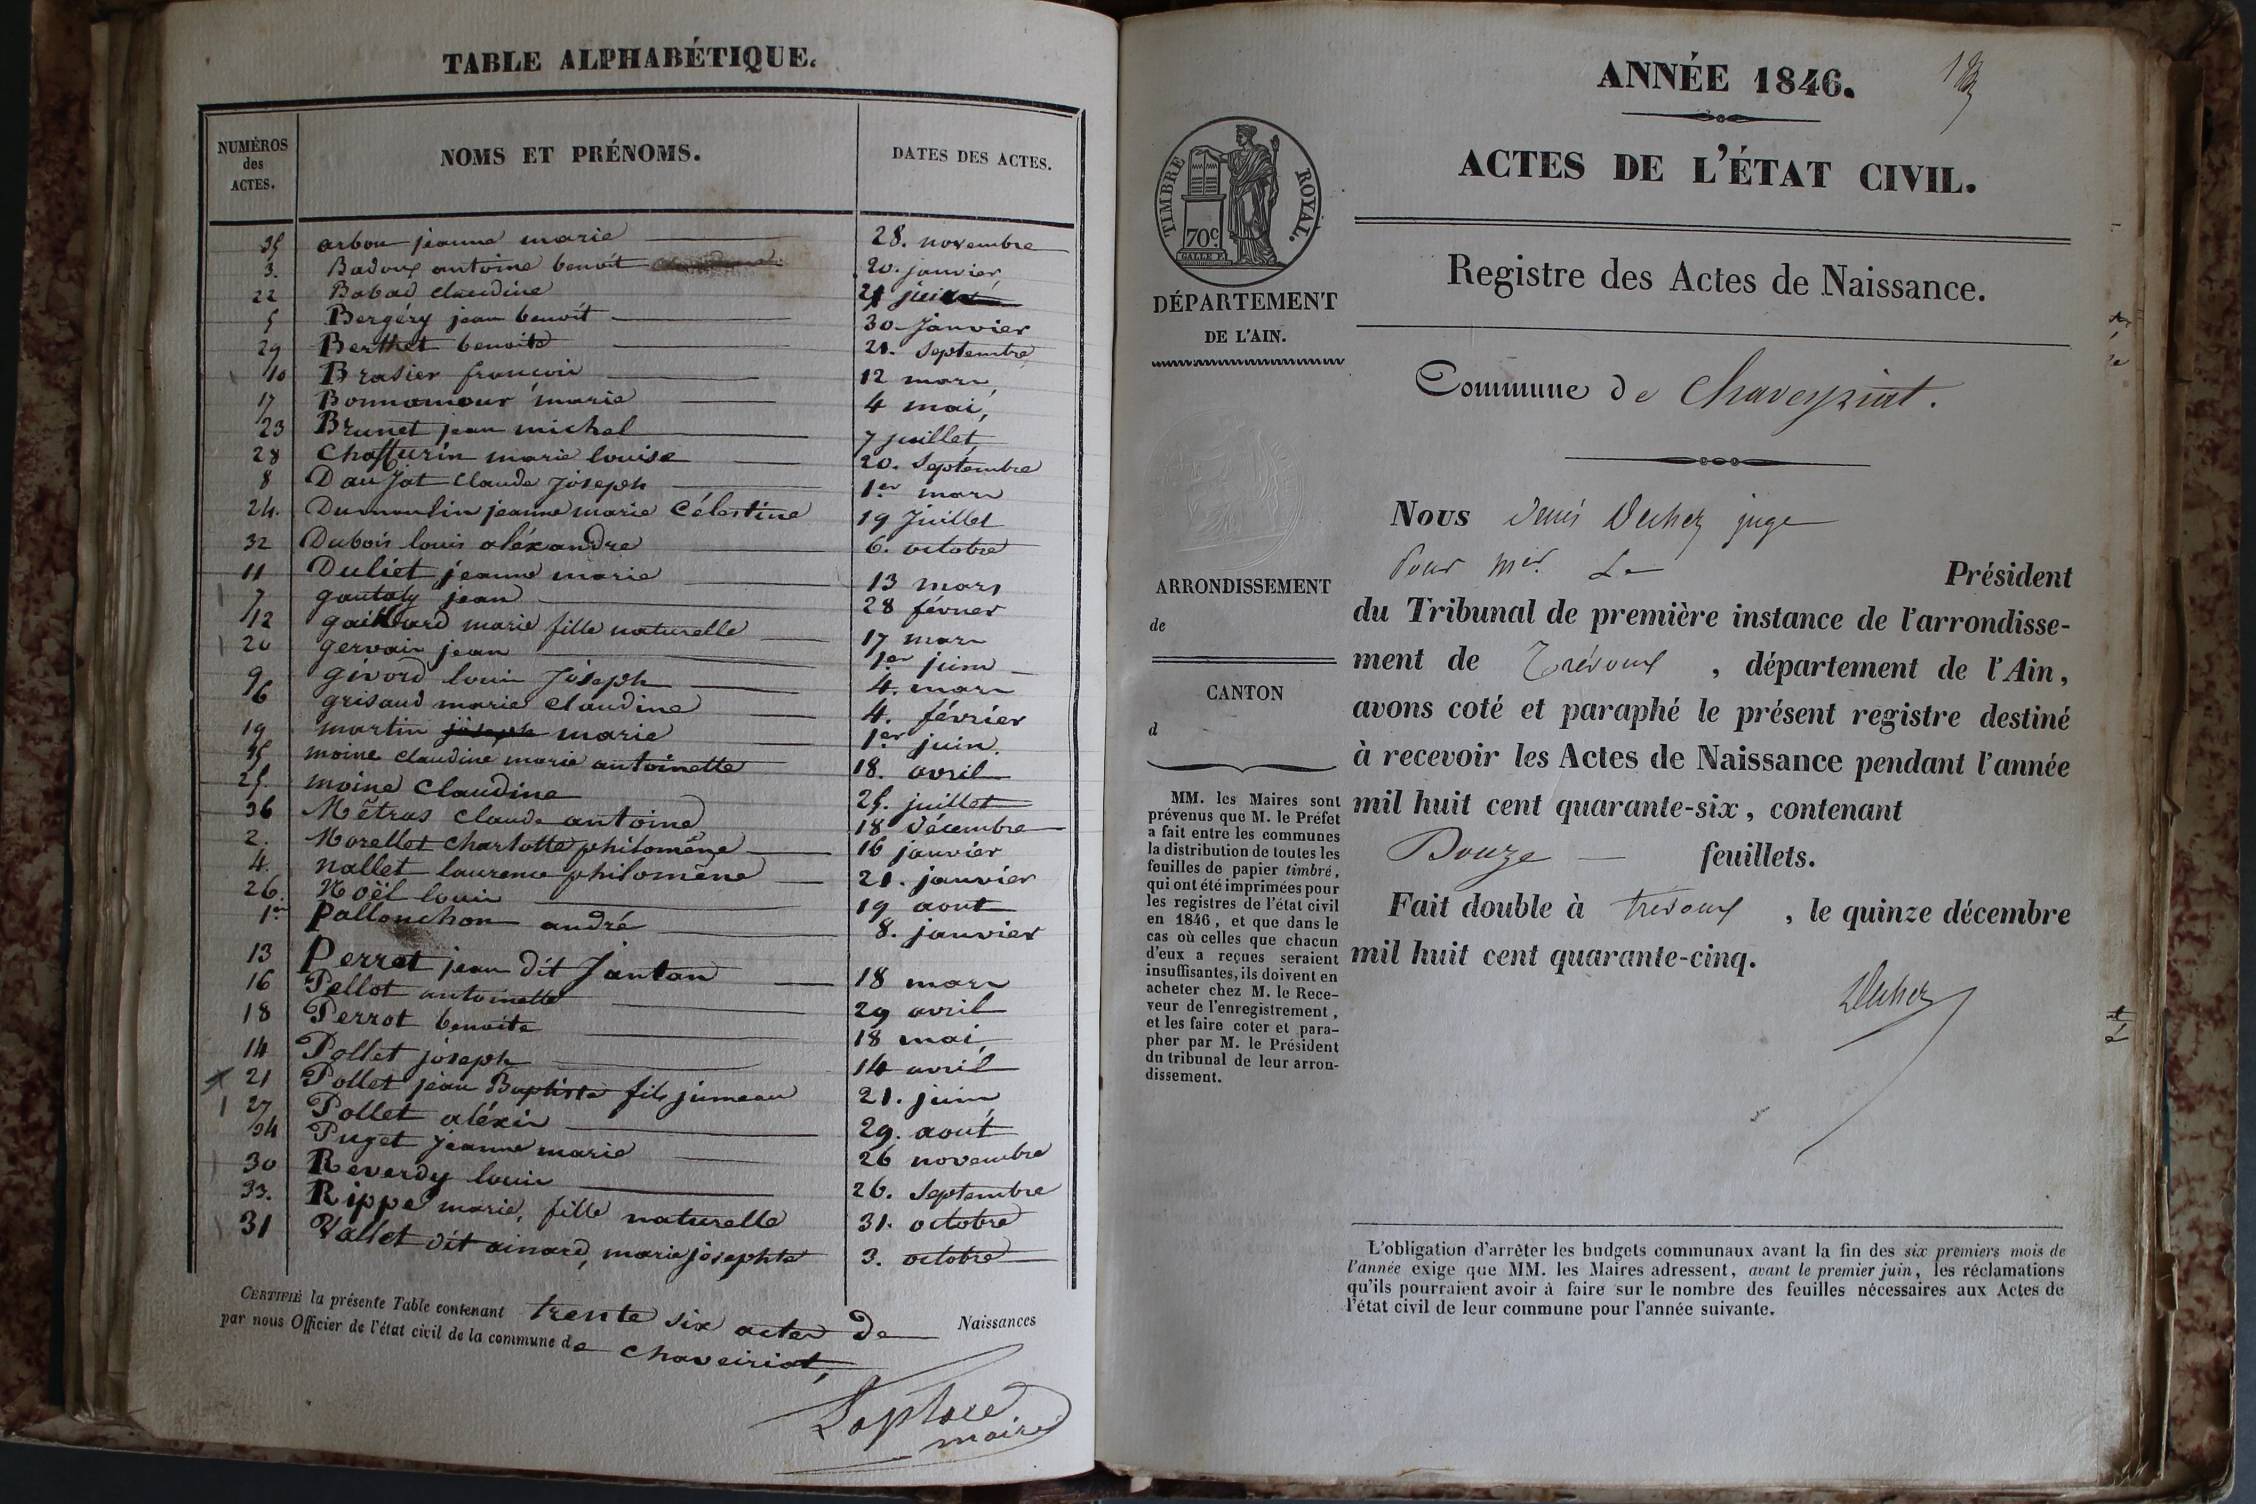 TABLE ALPHABÉTIQUE.
NUMÉROS des ACTES.
NOMS ET PRÉNOMS.
DATES DES ACTES.
35 arbon jeanne marie 28. novembre
3. Badoux antoine benoit 20. janvier
22 Babad claudine
5 Bergéry jean benoit 30 Janvier
29 Berthet benoite 21. Septembre
10 Brasier françois 12 mars
17 Bonnamour marie 4 mai,
23 Brunet jean michel 7 juillet
28 Chaffurin marie louise 20. Septembre
8 Daujat Claude Joseph 1er mars
24. Dumoulin jeanne marie Célestine 19 Juillet
32 Dubois louis aléxandre 6. octobre
11 Duliet jeanne marie 13 mars
7 gautaly jean 28 février
12 gaillard marie fille naturelle 17 mars
20 gervais jean 1er juin
9 givord louis Joseph 4. mars
6 grisaud marie claudine 4. février
19 martin joseph marie 1er juin.
15 moine claudine marie antoinette 18. avril
25. moine claudine 25. juillet
36 Mêtras claude antoine 18 décembre
2. Morellet charlotte philomène 16 janvier
4. nallet laurence philomène 21. janvier
26. Noël louis 19 aout
1er Pallanchon andré 8. janvier
13 Perret jean dit Jantan 18 mars
16 Pellot antoinette 29 avril
18 Perrot benoite 18 mai,
14 Pollet joseph 14 avril
21 Pollet jean Baptiste fils jumeau 21. juin
27 Pollet aléxis 29. août
34 Puget jeanne marie 26 novembre
30 Reverdy louis 26. Septembre
33. Rippe marie, fille naturelle 31. octobre
31 Vallet dit ainard, marie josephte 3. octobre
CERTIFIÉ la présente Table contenant trente six actes de Naissances
par nous Officier de l'état civil de la commune de chaveiriat,
Laplace
maire
ANNÉE 1846.
ACTES DE L'ÉTAT CIVIL.
TIMBRE ROYAL.
70c.
GALLE F.
DÉPARTEMENT
DE L'AIN.
Registre des Actes de Naissance.
Commune de Chaveyriat.
ARRONDISSEMENT
de
CANTON
d
MM. les Maires sont
prévenus que M. le Préfet
a fait entre les communes
la distribution de toutes les
feuilles de papier timbré,
qui ont été imprimées pour
les registres de l'état civil
en 1846, et que dans le
cas où celles que chacun
d'eux a reçues seraient
insuffisantes, ils doivent en
acheter chez M. le Rece-
veur de l'enregistrement,
et les faire coter et para-
pher par M. le Président
du tribunal de leur arron-
dissement.
Nous Denis Ducher juge
Pour Mr. Le Président
du Tribunal de première instance de l'arrondisse-
ment de Trévoux, département de l'Ain,
avons coté et paraphé le présent registre destiné
à recevoir les Actes de Naissance pendant l'année
mil huit cent quarante-six, contenant
Douze feuillets.
Fait double à trévoux, le quinze décembre
mil huit cent quarante-cinq.
Ducher
L'obligation d'arrêter les budgets communaux avant la fin des six premiers mois de
l'année exige que MM. les Maires adressent, avant le premier juin, les réclamations
qu'ils pourraient avoir à faire sur le nombre des feuilles nécessaires aux Actes de
l'état civil de leur commune pour l'année suivante.